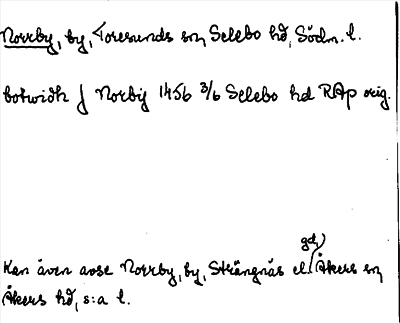 Norrby, by, Toresunds sn, Selebo hd, Södm. l.
botwidh J Norby 1456 3/6 Selebo hd RAp orig.
Kan även avse Norrby, by, Strängnäs el. gd, Åkers sn,
Åkers hd, s:a l.